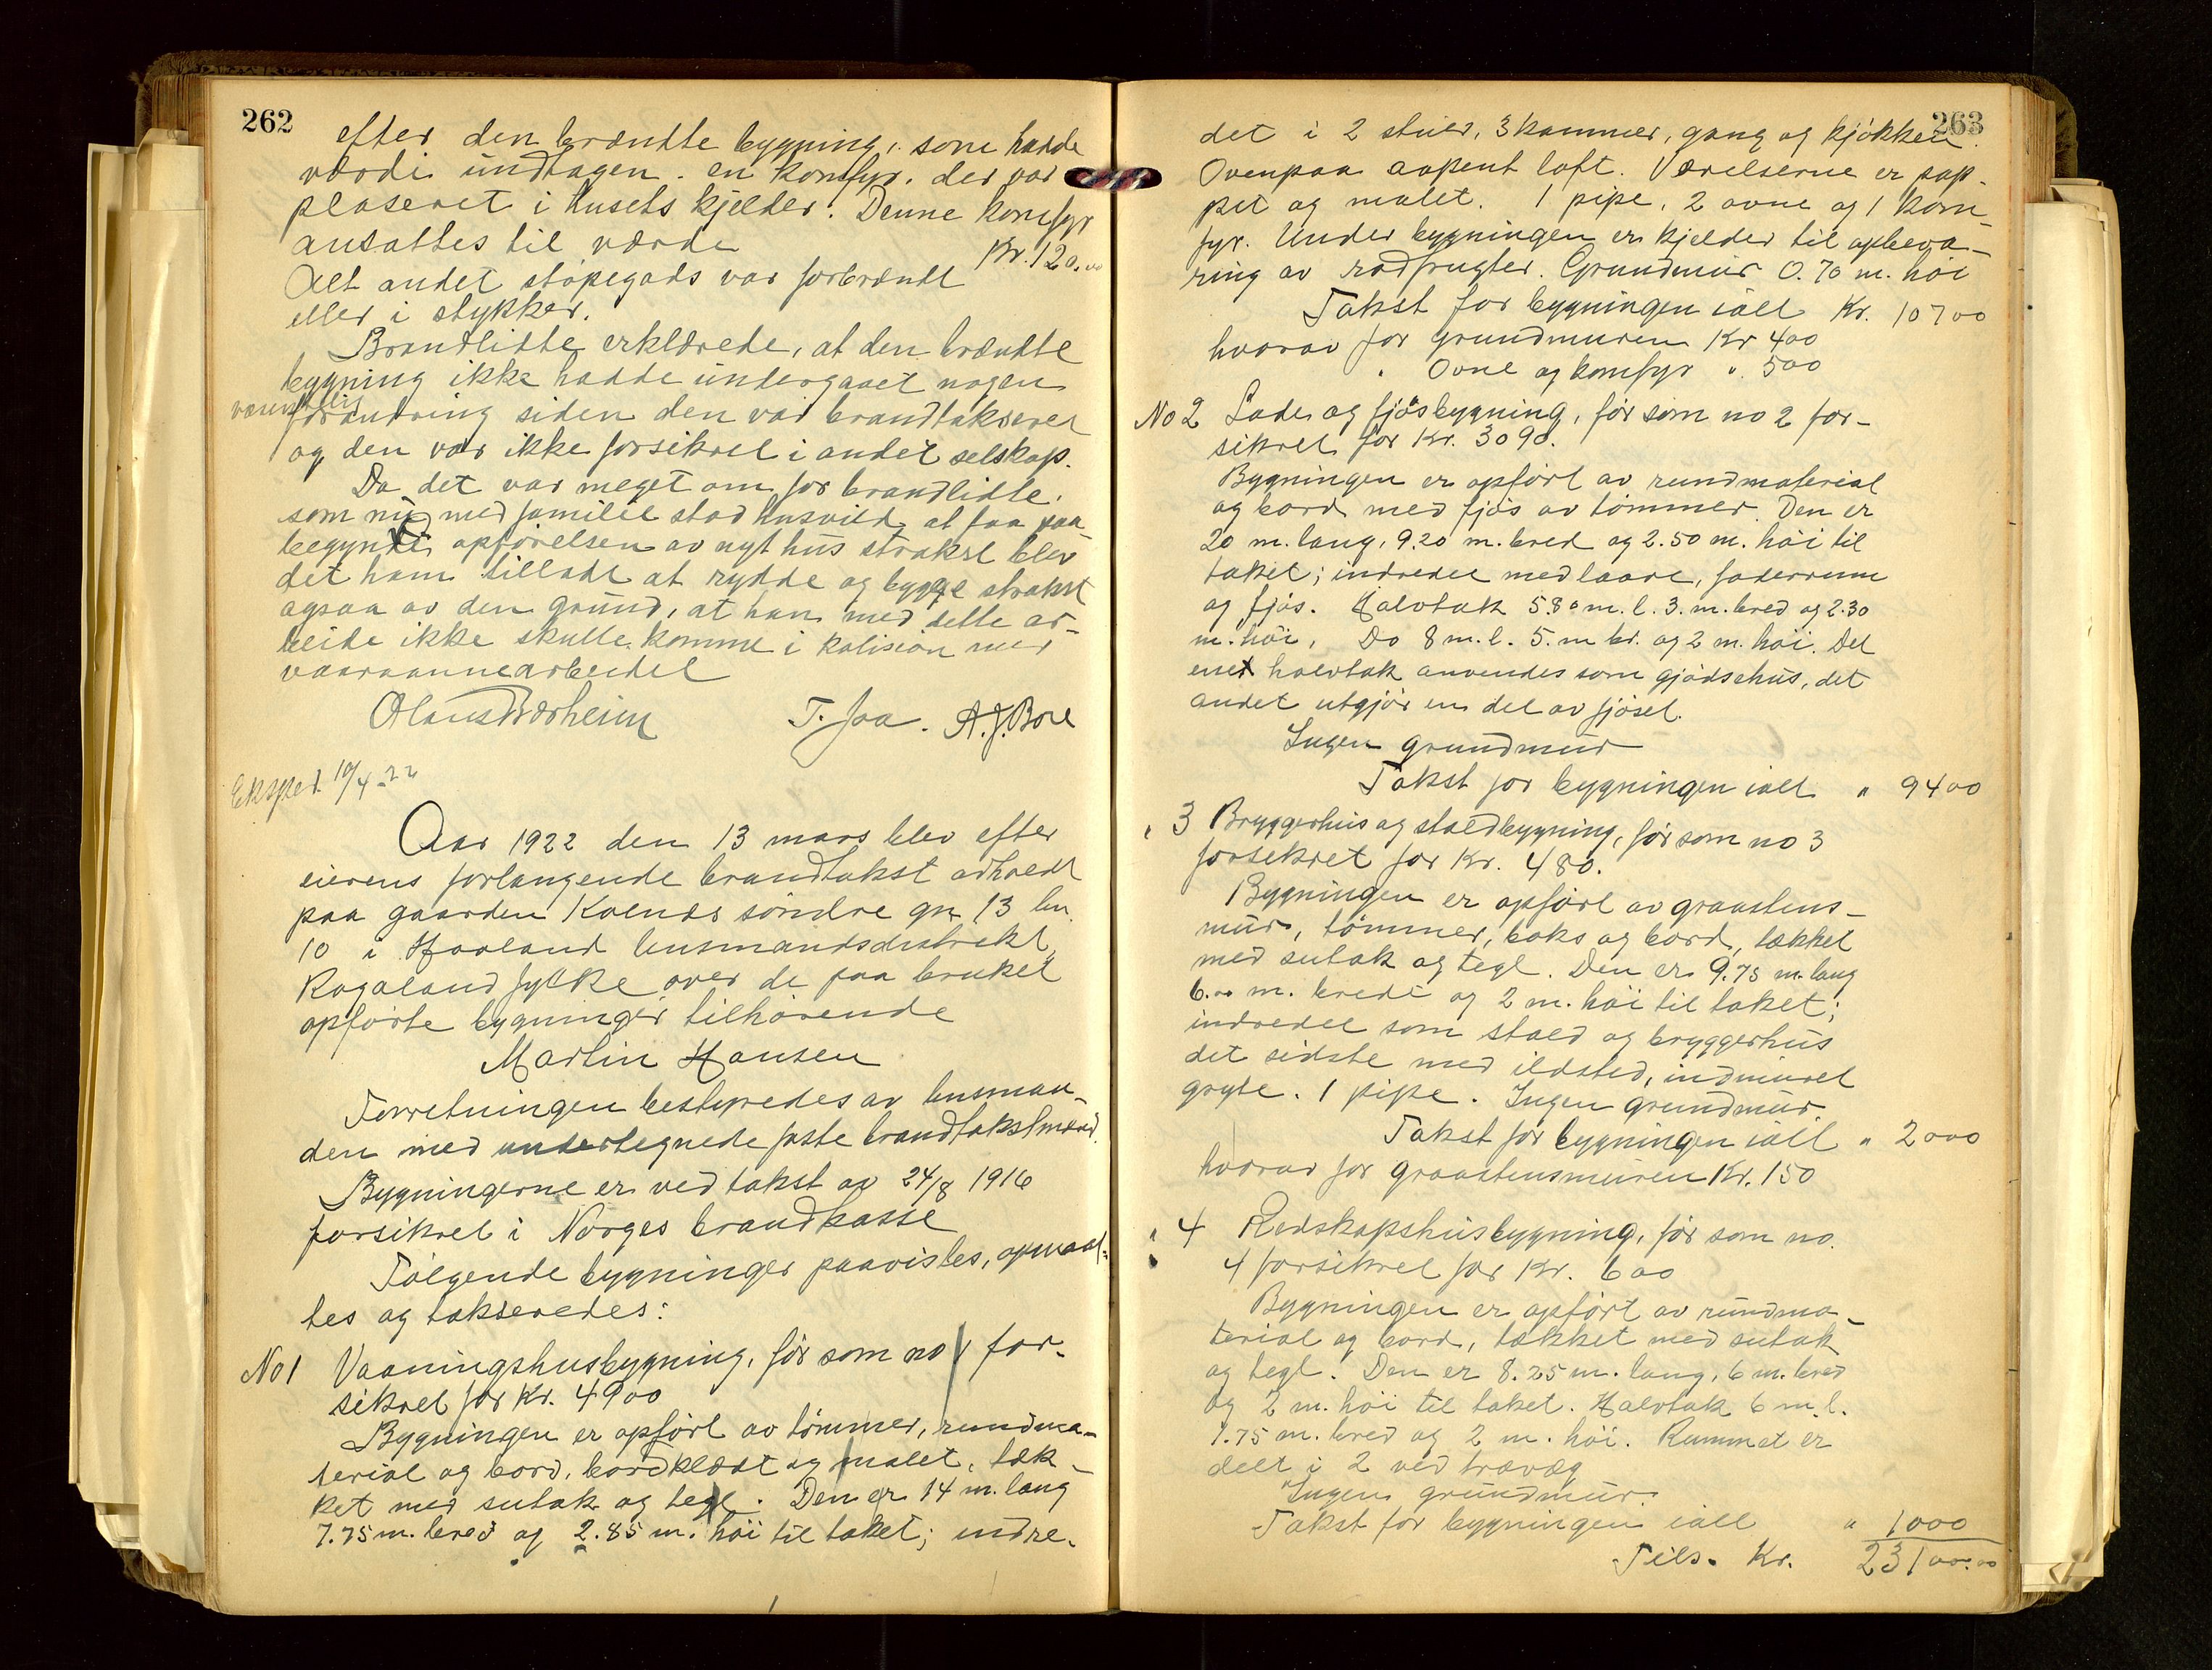 262
efter den brændte bygning, som hadde
værdi undtagen en komfyr, der var
plaseret i husets kjelder. Denne komfyr
ansattes til værde Kr. 120.00
Alt andet støpegods var forbrændt
eller i stykker.
Brandlidte erklærede, at den brændte
bygning ikke hadde undergaaet nogen
væsentlig
forandring siden den var brandtakseret
og den var ikke forsikret i andet selskap.
Da det var meget om for brandlidte,
som nu med familie stod husvild, at faa paa-
begyndt opførelsen av nyt hus strakst blev
det ham tilladt at rydde og bygge strakst
ogsaa av den grund, at han med dette ar-
beide ikke skulle komme i kolision med
vaaraannearbeidet
T. Joa. A. J. Bore
Ekspd. 10/4-22
Aar 1922 den 13 mars blev efter
eierens forlangende brandtakst avholdt
paa gaarden Kolnes søndre gn 13 bn.
10 i Haaland lensmandsdistrikt,
Rogaland fylke over de paa bruket
opførte bygninger tilhørende
Martin Hansen
Forretningen bestyredes av lensman-
den med undertegnede faste brandtakstmænd.
Bygningerne er ved takst av 24/8 1916
forsikret i Norges brandkasse
Følgende bygninger paavistes, opmaal-
tes og takseredes:
No 1 Vaaningshusbygning, før som no 1 for-
sikret for Kr. 4900
Bygningen er opført av tømmer, rundma-
terial og bord, bordklædt og malet, tæk-
ket med sutak og tegl. Den er 14 m. lang
7.75 m. bred og 2.85 m. høi til taket; indre-
263
det i 2 stuer, 3 kammer, gang og kjøkken.
Ovenpaa aapent loft. Værelserne er pap-
pet og malet. 1 pipe, 2 ovne og 1 kom-
fyr. Under bygningen er kjelder til opbeva-
ring av rodfrugter. Grundmur 0.70 m. høi
Takst for bygningen ialt Kr. 10700
hvorav for grundmuren Kr 400
" Ovne og komfyr " 500
No 2 Lade og fjøsbygning, før som no 2 for-
sikret for Kr. 3090.
Bygningen er opført av rundmaterial
og bord med fjøs av tømmer. Den er
20 m. lang, 9.20 m. bred og 2.50 m. høi til
taket; indredet med laave, foderrum
og fjøs. Halvtak 5.80 m. l. 3. m. bred og 2.30
m. høi, Do 8 m. l. 5. m br. og 2 m. høi. Det
enet halvtak anvendes som gjødsehus, det
andet utgjør en del av fjøset.
Ingen grundmur
Takst for bygningen ialt " 9400
" 3 Bryggerhus og staldbygning, før som no 3
forsikret for Kr. 480.
Bygningen er opført av graastens-
mur, tømmer, boks og bord, tækket
med sutak og tegl. Den er 9.75 m. lang
6.00 m. bred og 2 m. høi til taket;
indredet som stald og bryggerhus
det sidste med ildsted, indmuret
gryte. 1 pipe. Ingen grundmur.
Takst for bygningen ialt " 2000
hvorav for graastensmuren Kr. 150
" 4 Redskapshusbygning, før som no.
4 forsikret for Kr. 600
Bygningen er opført av rundma-
terial og bord, tækket med sutak
og tegl. Den er 8.25 m. lang, 6 m. bred
og 2 m. høi til taket. Halvtak 6 m. l.
1.75 m. bred og 2 m. høi. Rummet er
delt i 2 ved trævæg
Ingen grundmur.
Takst for bygningen ialt " 1000
Tils. Kr. 23100.00